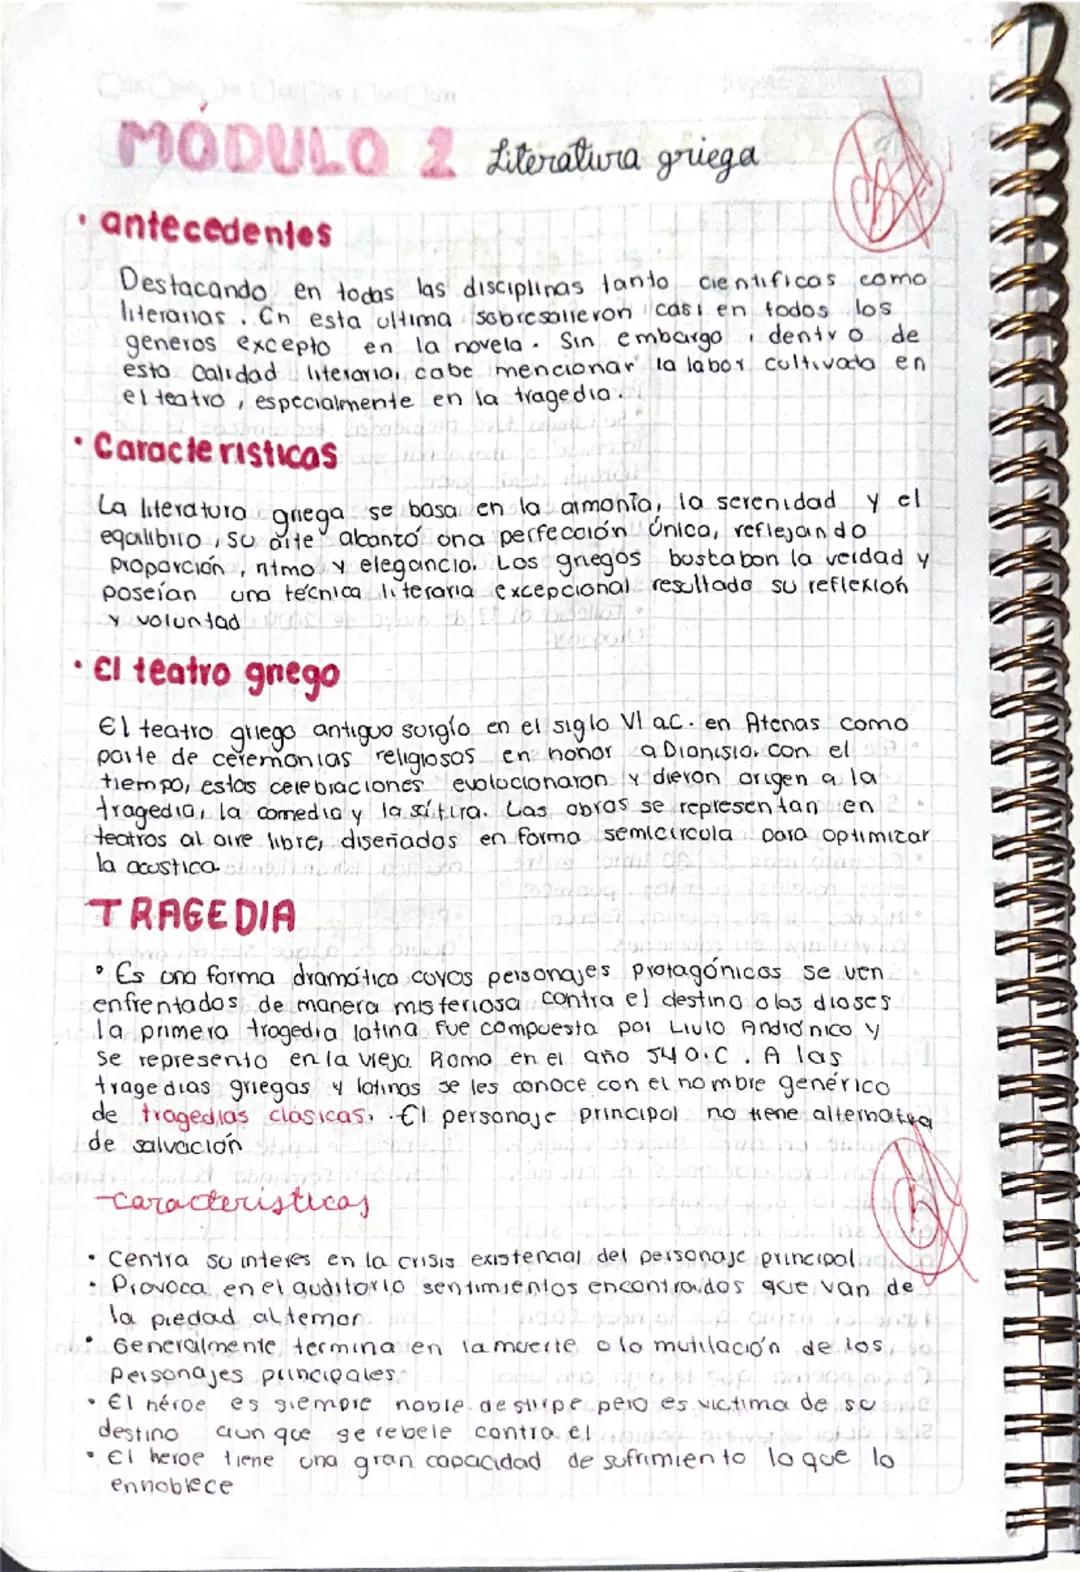 MÓDULO 2 Literatura griega
• antecedentes
Destacando en todas las disciplinas tanto cientificas como
literarias. En esta ultima sobresalieron casi en todos los
generos excepto en la novela. Sin embargo, dentro de
esta calidad literaria, cabe mencionar la labor cultivada en
el teatro, especialmente en la tragedia.
• Caracteristicas
La literatura griega se basa en la armonía, la serenidad y el
equilibrio, su arte abanzó una perfección única, reflejando
proporción, ritmo y elegancia. Los griegos buscaban la verdad y
poseían una técnica literaria excepcional resultado su reflexión
y voluntad
• El teatro griego
El teatro griego antiguo surgío en el siglo VI a.c. en Atenas como
parte de ceremonias religiosas en honor a Dionisio. con el
tiempo, estas celebraciones evolucionaron y dieron origen a la
tragedia, la comedia y la sátira. Las obras se representan en
teatros al aire libre, diseñados en forma semicircula para optimizar
la acustica.
TRAGEDIA
• Es una forma dramática cuyos personajes protagónicos se ven
enfrentados de manera misteriosa contra el destino o los dioses
la primera tragedia latina fue compuesta por Livio Andrónico y
se represento en la vieja Roma en el año 540.C. A las
tragedias griegas y latinas se les conoce con el nombre genérico
de tragedias clásicas. El personaje principal no tiene alternativa
de salvación
-caracteristicas
• Centra su interes en la crisis existencial del personaje principal.
• Provoca en el auditorio sentimientos encontrados que van de
la piedad al temor
• Generalmente termina en la muerte o la mutilación de los
personajes principales.
• El héroe es siempre noble de stirpe pero es victima de su
destino aun que se rebele contra el
• El heroe tiene una gran capacidad de sufrimiento lo que lo
ennoblece